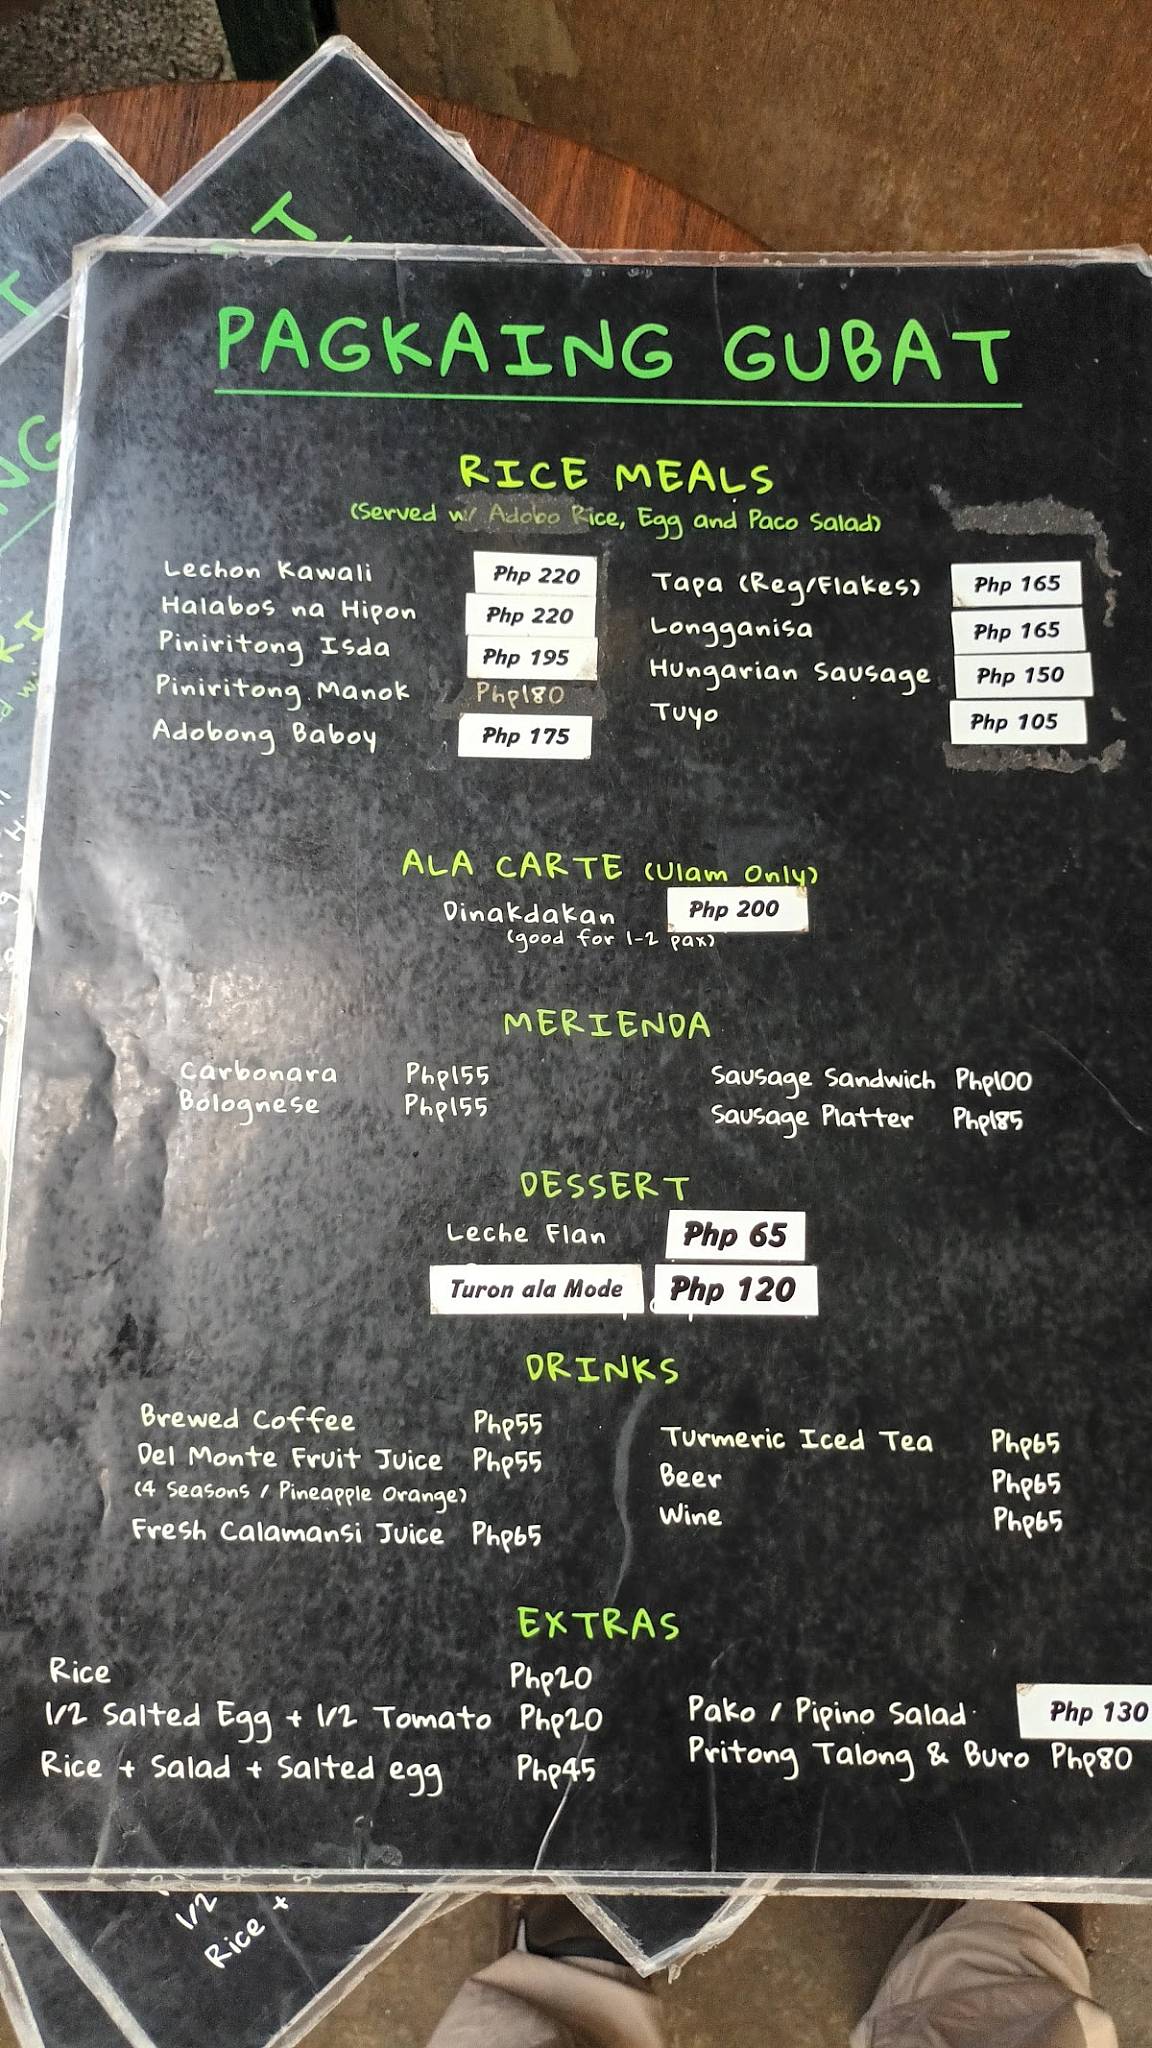 PAGKAING GUBAT
RICE MEALS
(Served w/ Adobo Rice, Egg and Paco Salad)
Lechon Kawali Php 220
Halabos na Hipon Php 220
Piniritong Isda Php 195
Piniritong Manok Php180
Adobong Baboy Php 175
Tapa (Reg/Flakes) Php 165
Longganisa Php 165
Hungarian Sausage Php 150
Tuyo Php 105
ALA CARTE (Ulam Only)
Dinakdakan Php 200
(good for 1-2 pax)
MERIENDA
Carbonara Php155
Bolognese Php155
Sausage Sandwich Php100
Sausage Platter Php185
DESSERT
Leche Flan Php 65
Turon ala Mode Php 120
DRINKS
Brewed Coffee Php55
Del Monte Fruit Juice Php55
(4 Seasons / Pineapple Orange)
Fresh Calamansi Juice Php65
Turmeric Iced Tea Php65
Beer Php65
Wine Php65
EXTRAS
Rice Php20
1/2 Salted Egg + 1/2 Tomato Php20
Rice + Salad + Salted egg Php45
Pako / Pipino Salad Php 130
Pritong Talong & Buro Php80
1/2
Rice +